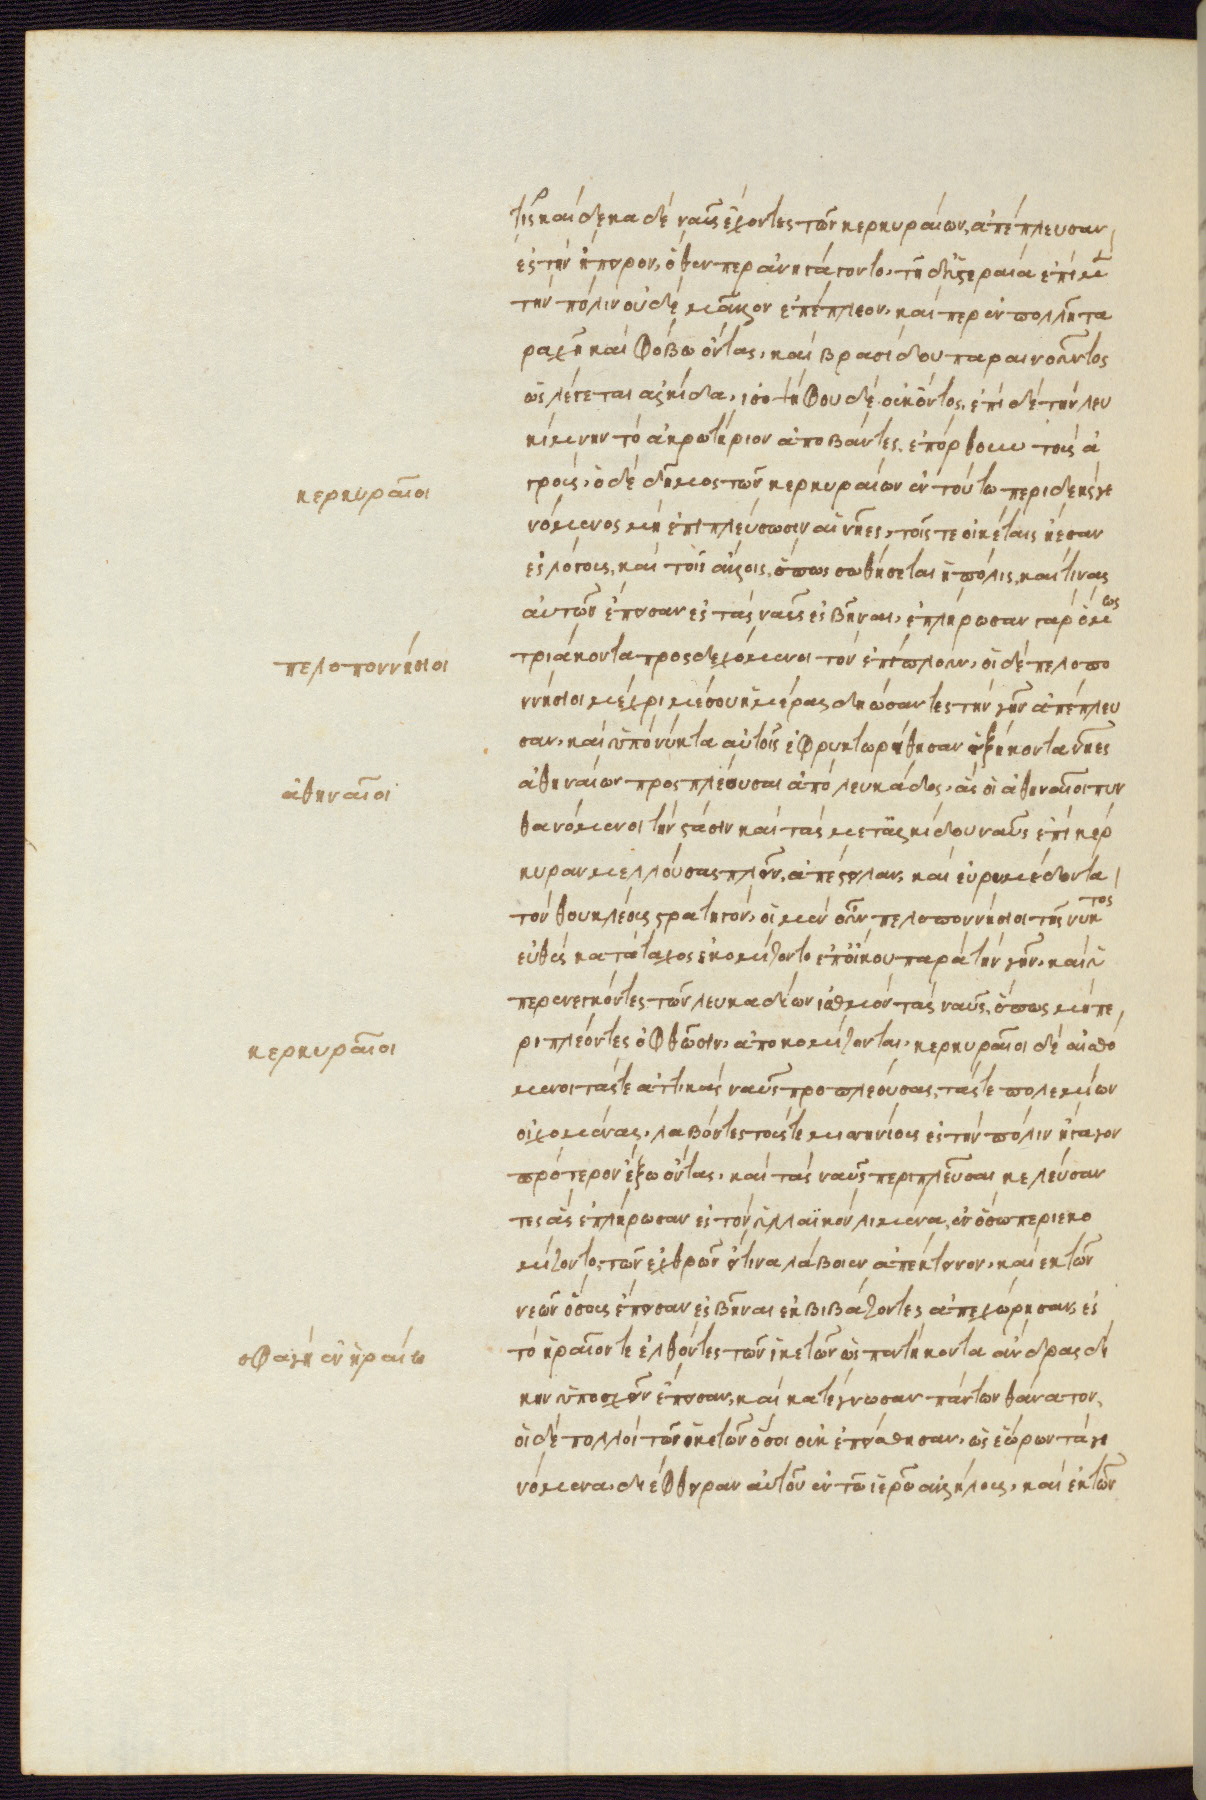 τρεῖς καὶ δέκα δὲ ναῦς ἔχοντες τῶν κερκυραίων, ἀπέπλευσαν,
ἐς τὴν ἤπειρον, ὅθεν περ ἀνηγάγοντο. τῇ δ' ὑστεραία ἐπὶ μὲν
τὴν πόλιν οὐδὲ μᾶλλον ἐπέπλεον. καί περ ἐν πολλῇ τα
ραχῇ καὶ φόβω ὄντας, καὶ βρασίδου παραινοῦντος
ὡς λέγεται ἀλκίδα, ἰσοψήφου δὲ οὐκ ὄντος. ἐπὶ δὲ τὴν λευ
κίμνην τὸ ἀκρωτήριον ἀποβάντες, ἐπόρθουν τοὺς ἀ
κερκυραῖοι
γρούς. ὁ δὲ δῆμος τῶν κερκυραίων ἐν τούτω περιδεὴς γε
νόμενος μὴ ἐπιπλεύσωσιν αἱ νῆες, τοῖς τε οἰκέταις ἤεσαν
ἐς λόγους, καὶ τοῖς ἄλλοις, ὅπως σωθήσεται ἡ πόλις, καί τινας
αὐτῶν ἔπεισαν ἐς τὰς ναῦς ἐσβῆναι. ἐπλήρωσαν γὰρ ὅμως
πελοποννήσιοι
τριάκοντα προσδεχόμενοι τὸν ἐπίπλουν. οἱ δὲ πελοπο
ννήσιοι μέχρι μέσου ἡμέρας δηώσαντες τὴν γῆν ἀπέπλευ
σαν. καὶ ὑπὸ νύκτα αὐτοῖς ἐφρυκτωρήθησαν ἑξήκοντα νῆες
ἀθηναῖοι
ἀθηναίων προσπλέουσαι ἀπὸ λευκάδος. ἃς οἱ ἀθηναῖοι πυν
θανόμενοι τὴν στάσιν καὶ τὰς μετ' ἀλκίδου ναῦς ἐπὶ κέρ
κυραν μελλούσας πλεῖν, ἀπέστειλαν, καὶ εὐρυμέδοντα,
τὸν θουκλέους στρατηγόν. οἱ μὲν οὖν πελοποννήσιοι τῆς νυκτὸς
εὐθὺς κατὰ τάχος ἐκομίζοντο ἐπ' οἴκου παρὰ τὴν γῆν. καὶ ὑ
περενεγκόντες τῶν λευκαδίων ἰσθμὸν τὰς ναῦς, ὅπως μὴ πε,
κερκυραῖοι
ριπλέοντες ὀφθῶσιν, ἀποκομίζονται. κερκυραῖοι δὲ αἰσθό
μενοι τάς τε ἀττικὰς ναῦς προσπλεούσας, τάς τε πολεμίων
οἰχομένας, λαβόντες τούς τε μεσσηνίους ἐς τὴν πόλιν ἤγαγον
πρότερον ἔξω ὄντας. καὶ τὰς ναῦς περιπλεῦσαι κελεύσαν
τες ἃς ἐπλήρωσαν ἐς τὸν ὑλλαϊκὸν λιμένα, ἐν ὅσω περιεκο
μίζοντο, τῶν ἐχθρῶν εἴ τινα λάβοιεν ἀπέκτεινον. καὶ ἐκ τῶν
νεῶν ὅσους ἔπεισαν ἐσβῆναι ἐκβιβάζοντες ἀπεχώρησαν, ἐς
σφαγὴ ἐν ἡραίω
τὸ ἡραῖόν τε ἐλθόντες τῶν ἱκετῶν ὡς πεντήκοντα ἄνδρας δί
κην ὑποσχεῖν ἔπεισαν, καὶ κατέγνωσαν πάντων θάνατον,
οἱ δὲ πολλοὶ τῶν ἱκετῶν ὅσοι οὐκ ἐπείσθησαν, ὡς ἑώρων τὰ γι
νόμενα, διέφθειραν αὐτοῦ ἐν τῶ ἱερῶ ἀλλήλους. καὶ ἐκ τῶν